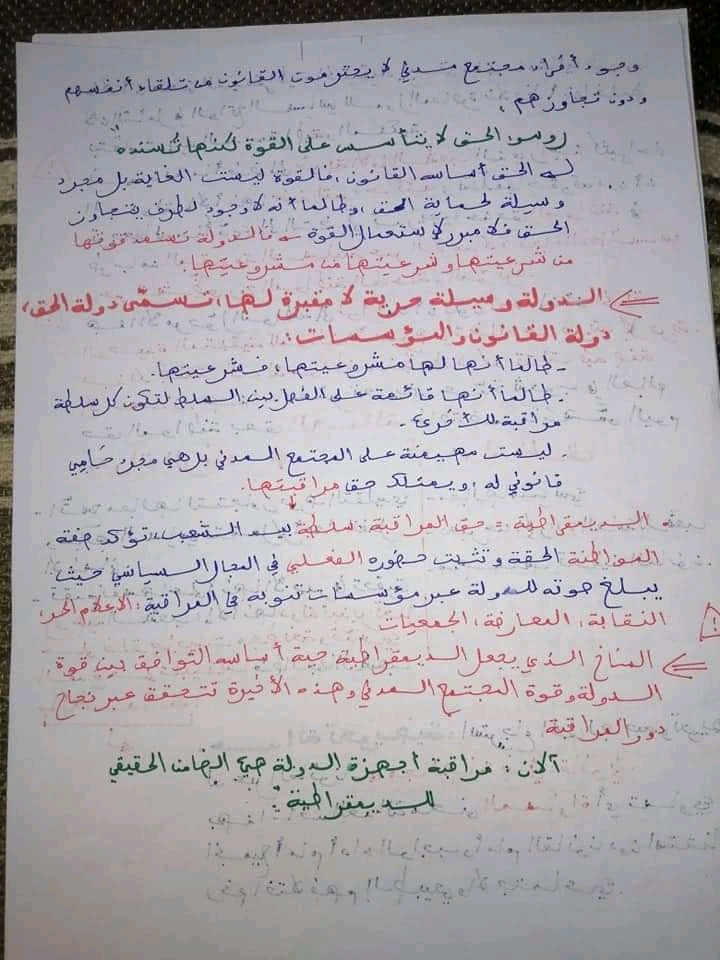 وجود أفراد مجتمع مدني لا يحترمون القانون من تلقاء أنفسهم
ودون تجاوزهم.
روسو: الحق لا يتأسس على القوة لكنها تُسنده"
له الحق أساسه القانون، فالقوة ليست الغاية بل مجرد
وسيلة لحماية الحق، وطالما أنه لا وجود لطرف يتجاوز
الحق فلا مبرر لاستعمال القوة فالدولة تستمد قوتها
من شرعيتها وشرعيتها من مشروعيتها.
الدولة وسيلة حرية لا مقبرة لها، تسمى دولة الحق،
دولة القانون والمؤسسات:
- طالما أنها لها مشروعيتها، فشرعيتها.
- طالما أنها قائمة على الفصل بين السلط لتكون كل سلطة
مراقبة للأخرى.
- ليست مهيمنة على المجتمع المدني بل هي مجرد حامي
قانوني له، ويمتلك حق مراقبتها.
الديمقراطية = حق المراقبة: سلطة بيد الشعب، تؤكد صفة
المواطنة الحقة وتثبت حضوره الفعلي في المجال السياسي حيث
يبلغ صوته للدولة عبر مؤسسات تنوبه في المراقبة: الاعلام الحر،
النقابة، المعارضة، الجمعيات
المناخ الذي يجعل الديمقراطية حية أساسه التوافق بين قوة
الدولة وقوة المجتمع المدني وهذه الأخيرة تتحقق عبر نجاح
دور المراقبة
آلان: "مراقبة أجهزة الدولة هي الضامن الحقيقي
للديمقراطية".